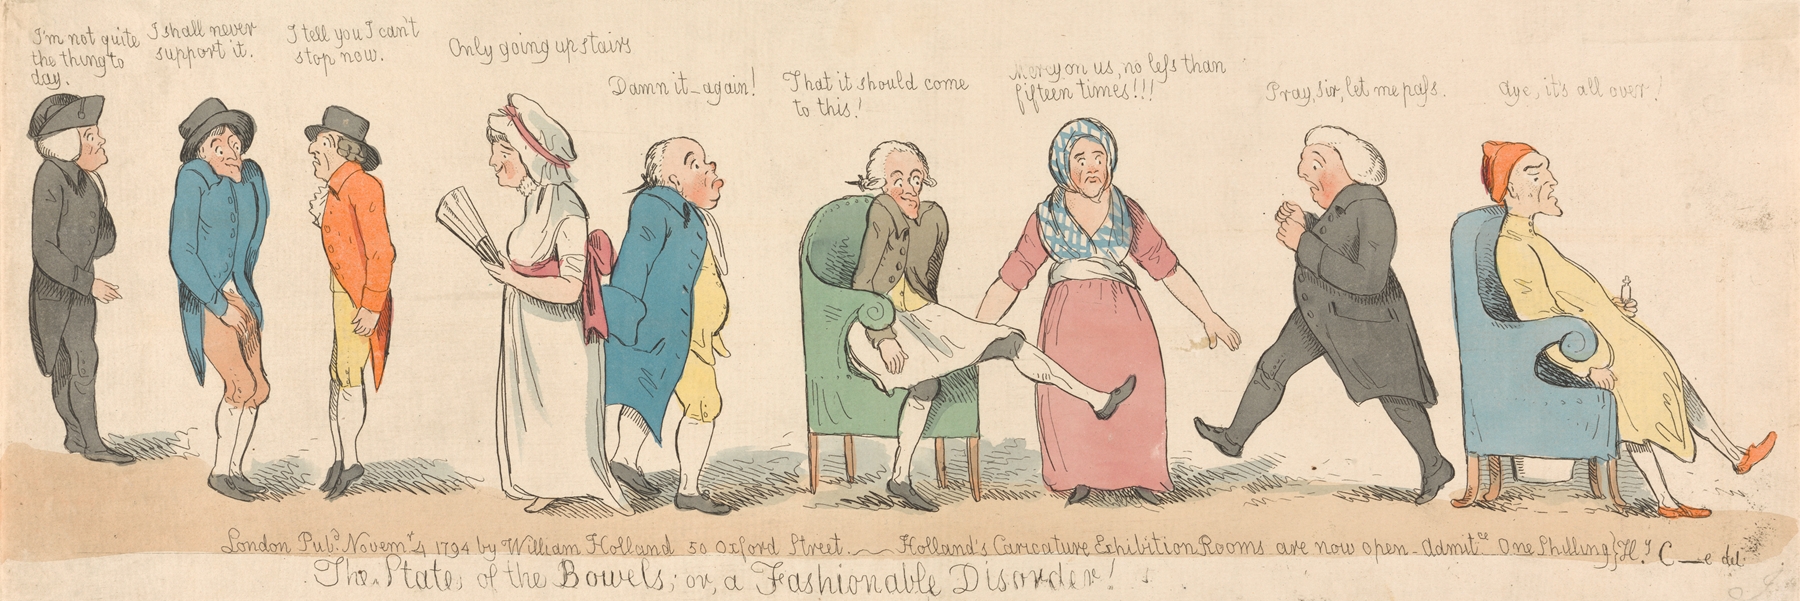 I'm not quite
the thing to
day.
I shall never
support it.
I tell you I can't
stop now.
Only going up stairs
Damn it - again!
That it should come
to this!
Mercy on us, no leſs than
fifteen times!!!
Pray, Sir, let me paſs.
Aye, it's all over!
London Pubd. Novemr. 4 1794 by William Holland 50 Oxford Street. Holland's Caricature Exhibition Rooms are now open - Admitce One Shilling} Hy C—e del.
The State of the Bowels; or, a Fashionable Disorder!